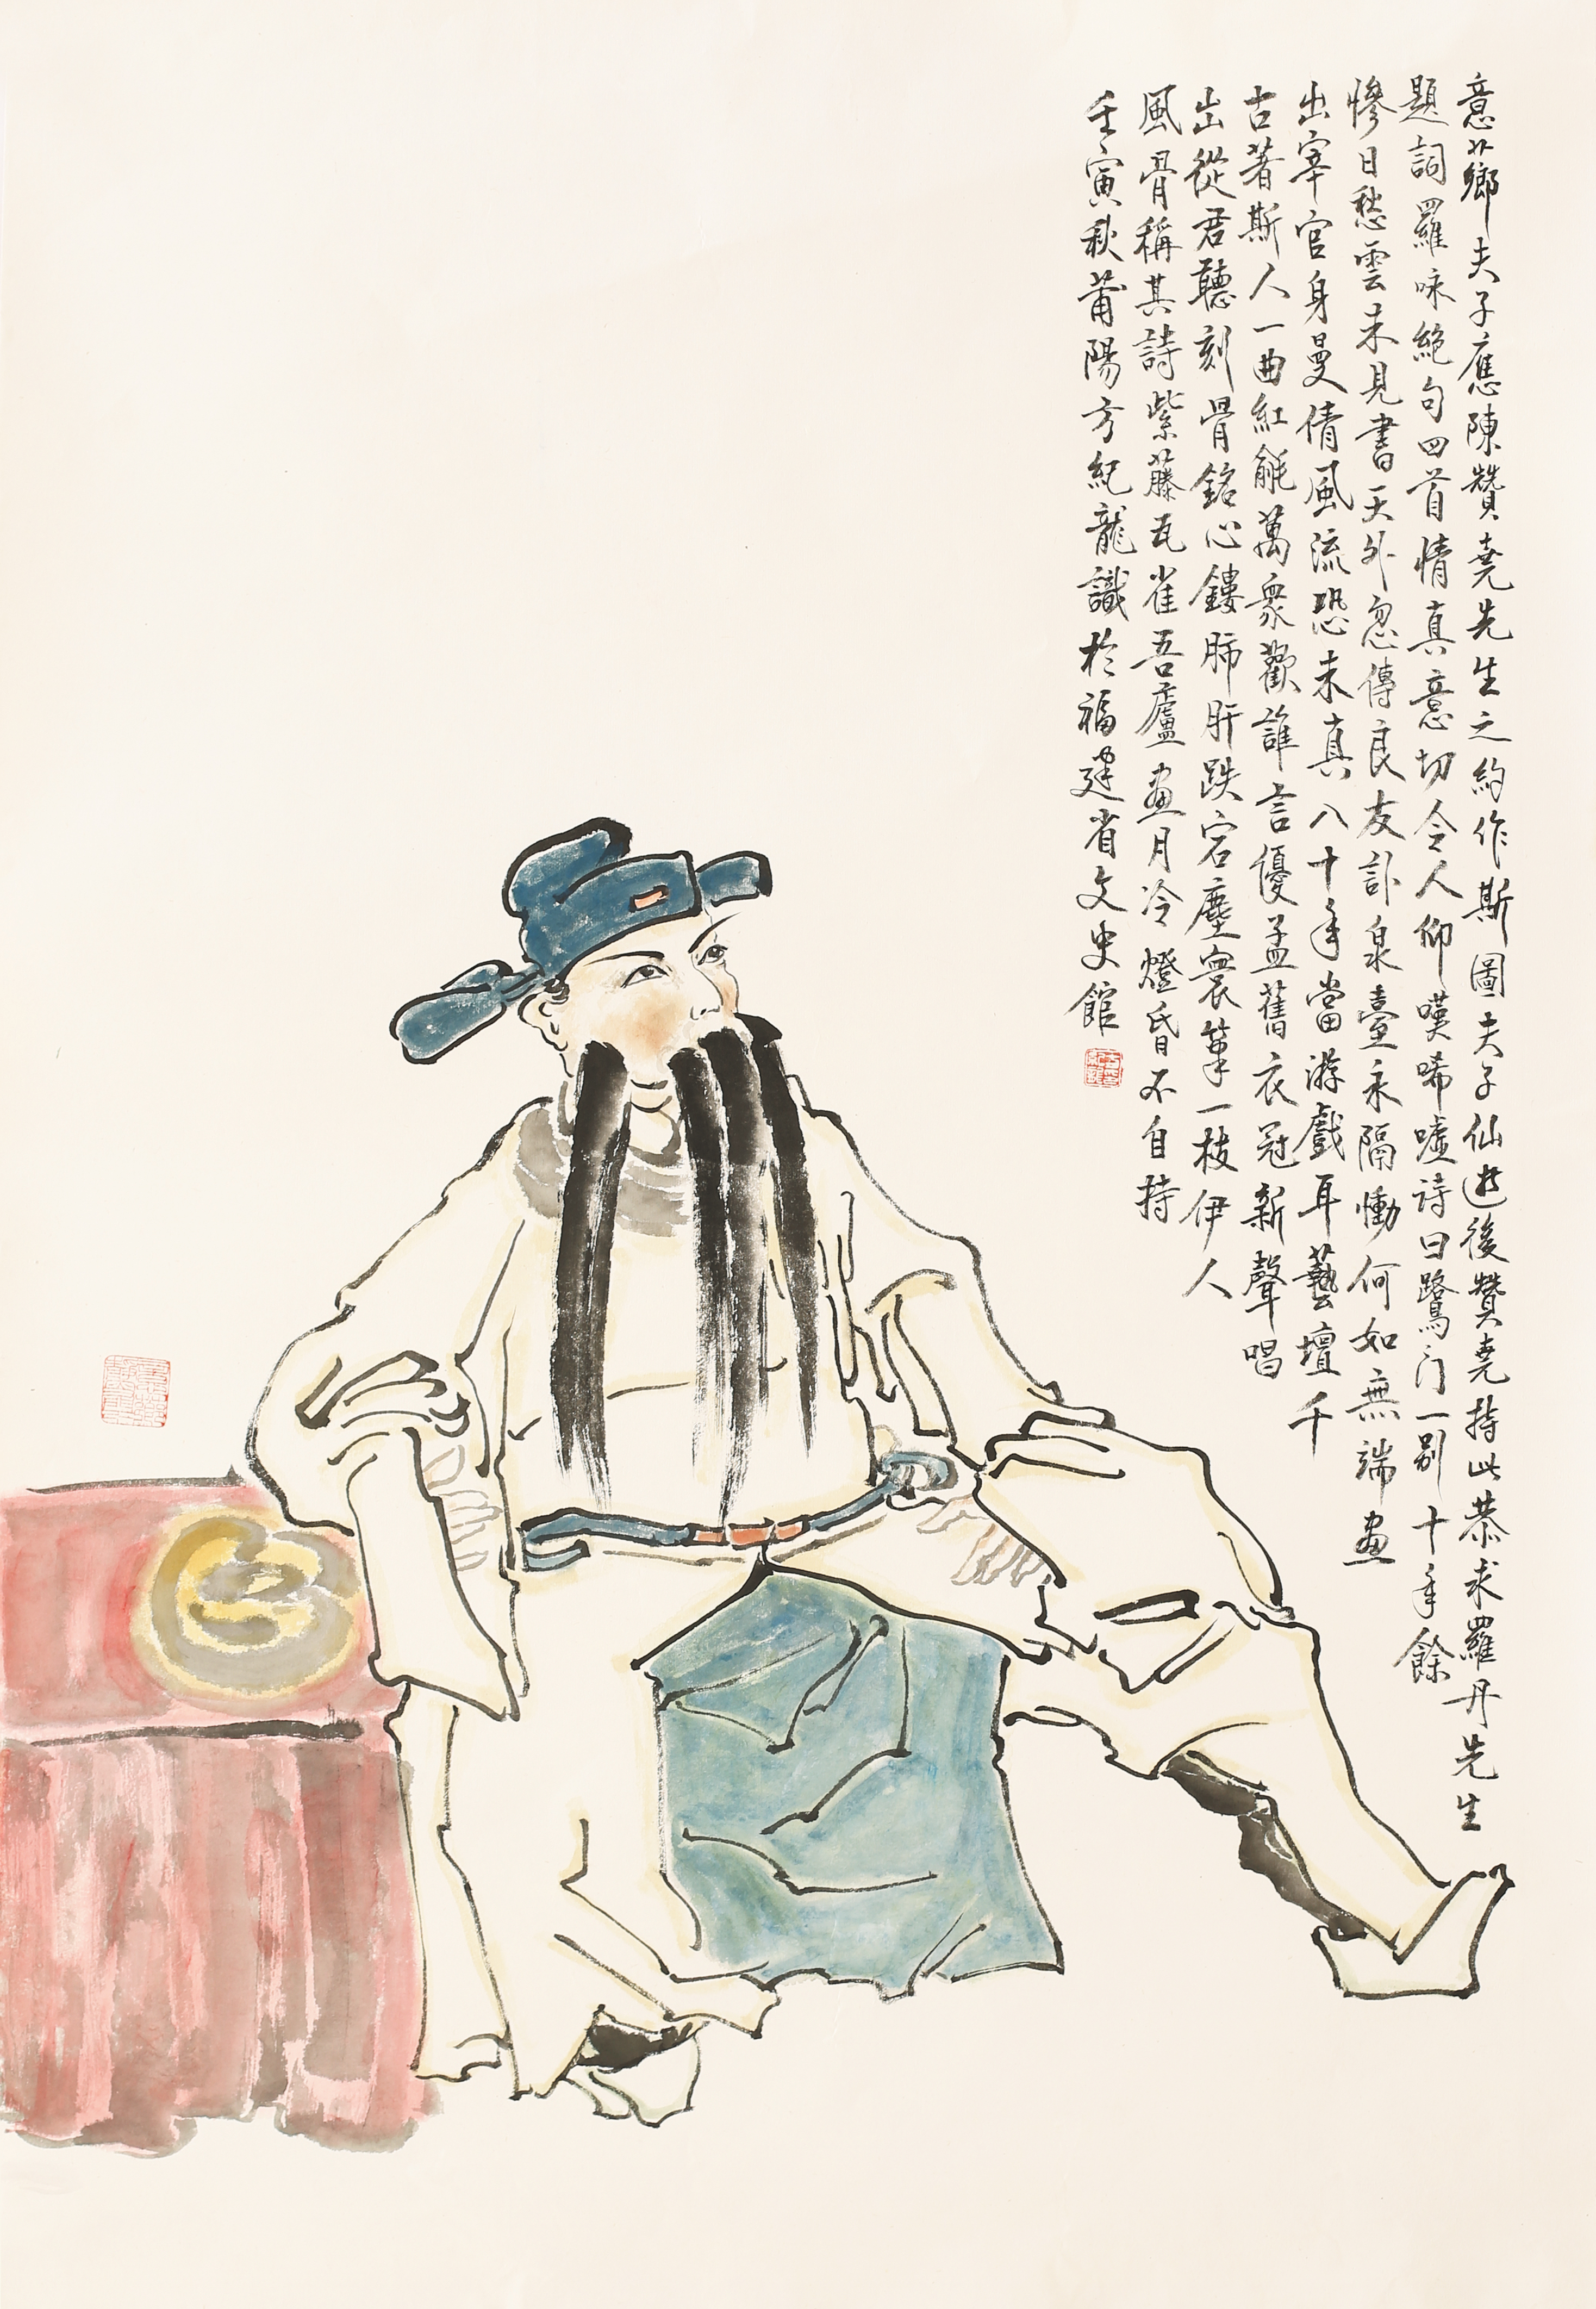 意薌夫子應陳贊堯先生之約作斯圖夫子仙逰後贊堯持此恭求羅丹先生
題詞羅咏絕句四首情真意切令人仰嘆唏噓詩曰鷺门一别十年餘
慘日愁雲未見書天外忽傳良友訃泉臺永隔慟何如無端畫
出宰官身曼倩風流恐未真八十年當游戲耳藝壇千
古著斯人一曲紅氍萬衆歡誰言優孟舊衣冠新聲唱
出從君聽刻骨銘心鏤肺肝跌宕塵寰筆一枝伊人
風骨稱其詩紫藤瓦雀吾廬畫月冷燈昏不自持
壬寅秋莆陽方紀龍識於福建省文史館